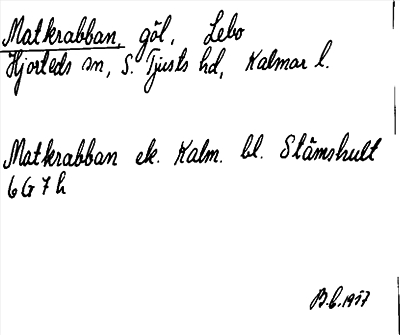 Matkrabban, göl, Lebo
Hjorteds sn, S. Tjusts hd, Kalmar l.
Matkrabban ek. Kalm. bl. Ståmshult
6 G 7 h
B.E. 1957